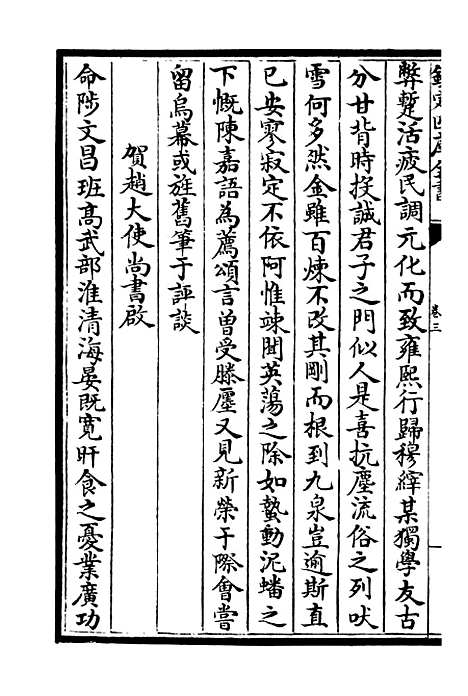 欽定四庫全書
卷三
弊蹔活疲民調元化而致雍熙行歸穆縡某獨學友古
分甘背時投誠君子之門似人是喜抗塵流俗之列吠
雪何多然金雖百煉不改其剛而根到九泉豈逾斯直
已安寥寂定不依阿惟竦聞英蕩之除如蟄動泥蟠之
下慨陳嘉語為薦頌言曾受滕廛又見新榮于際會嘗
留烏幕或旌舊筆于評談
賀趙大使尚書啟
命陟文昌班高武部淮清海晏既寬旰食之憂業廣功